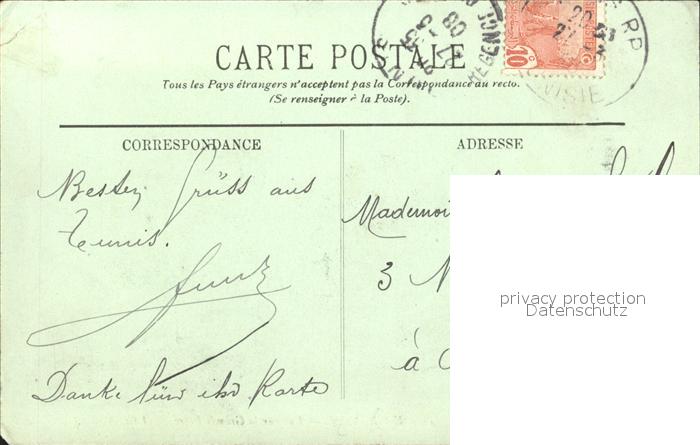 CARTE POSTALE
Tous les Pays étrangers n'acceptent pas la Correspondance au recto.
(Se renseigner à la Poste).
CORRESPONDANCE
ADRESSE
Besten Grüss aus
Tunis.
Danke für ihr Karte
Mademoi
3
à
10
privacy protection
Datenschutz